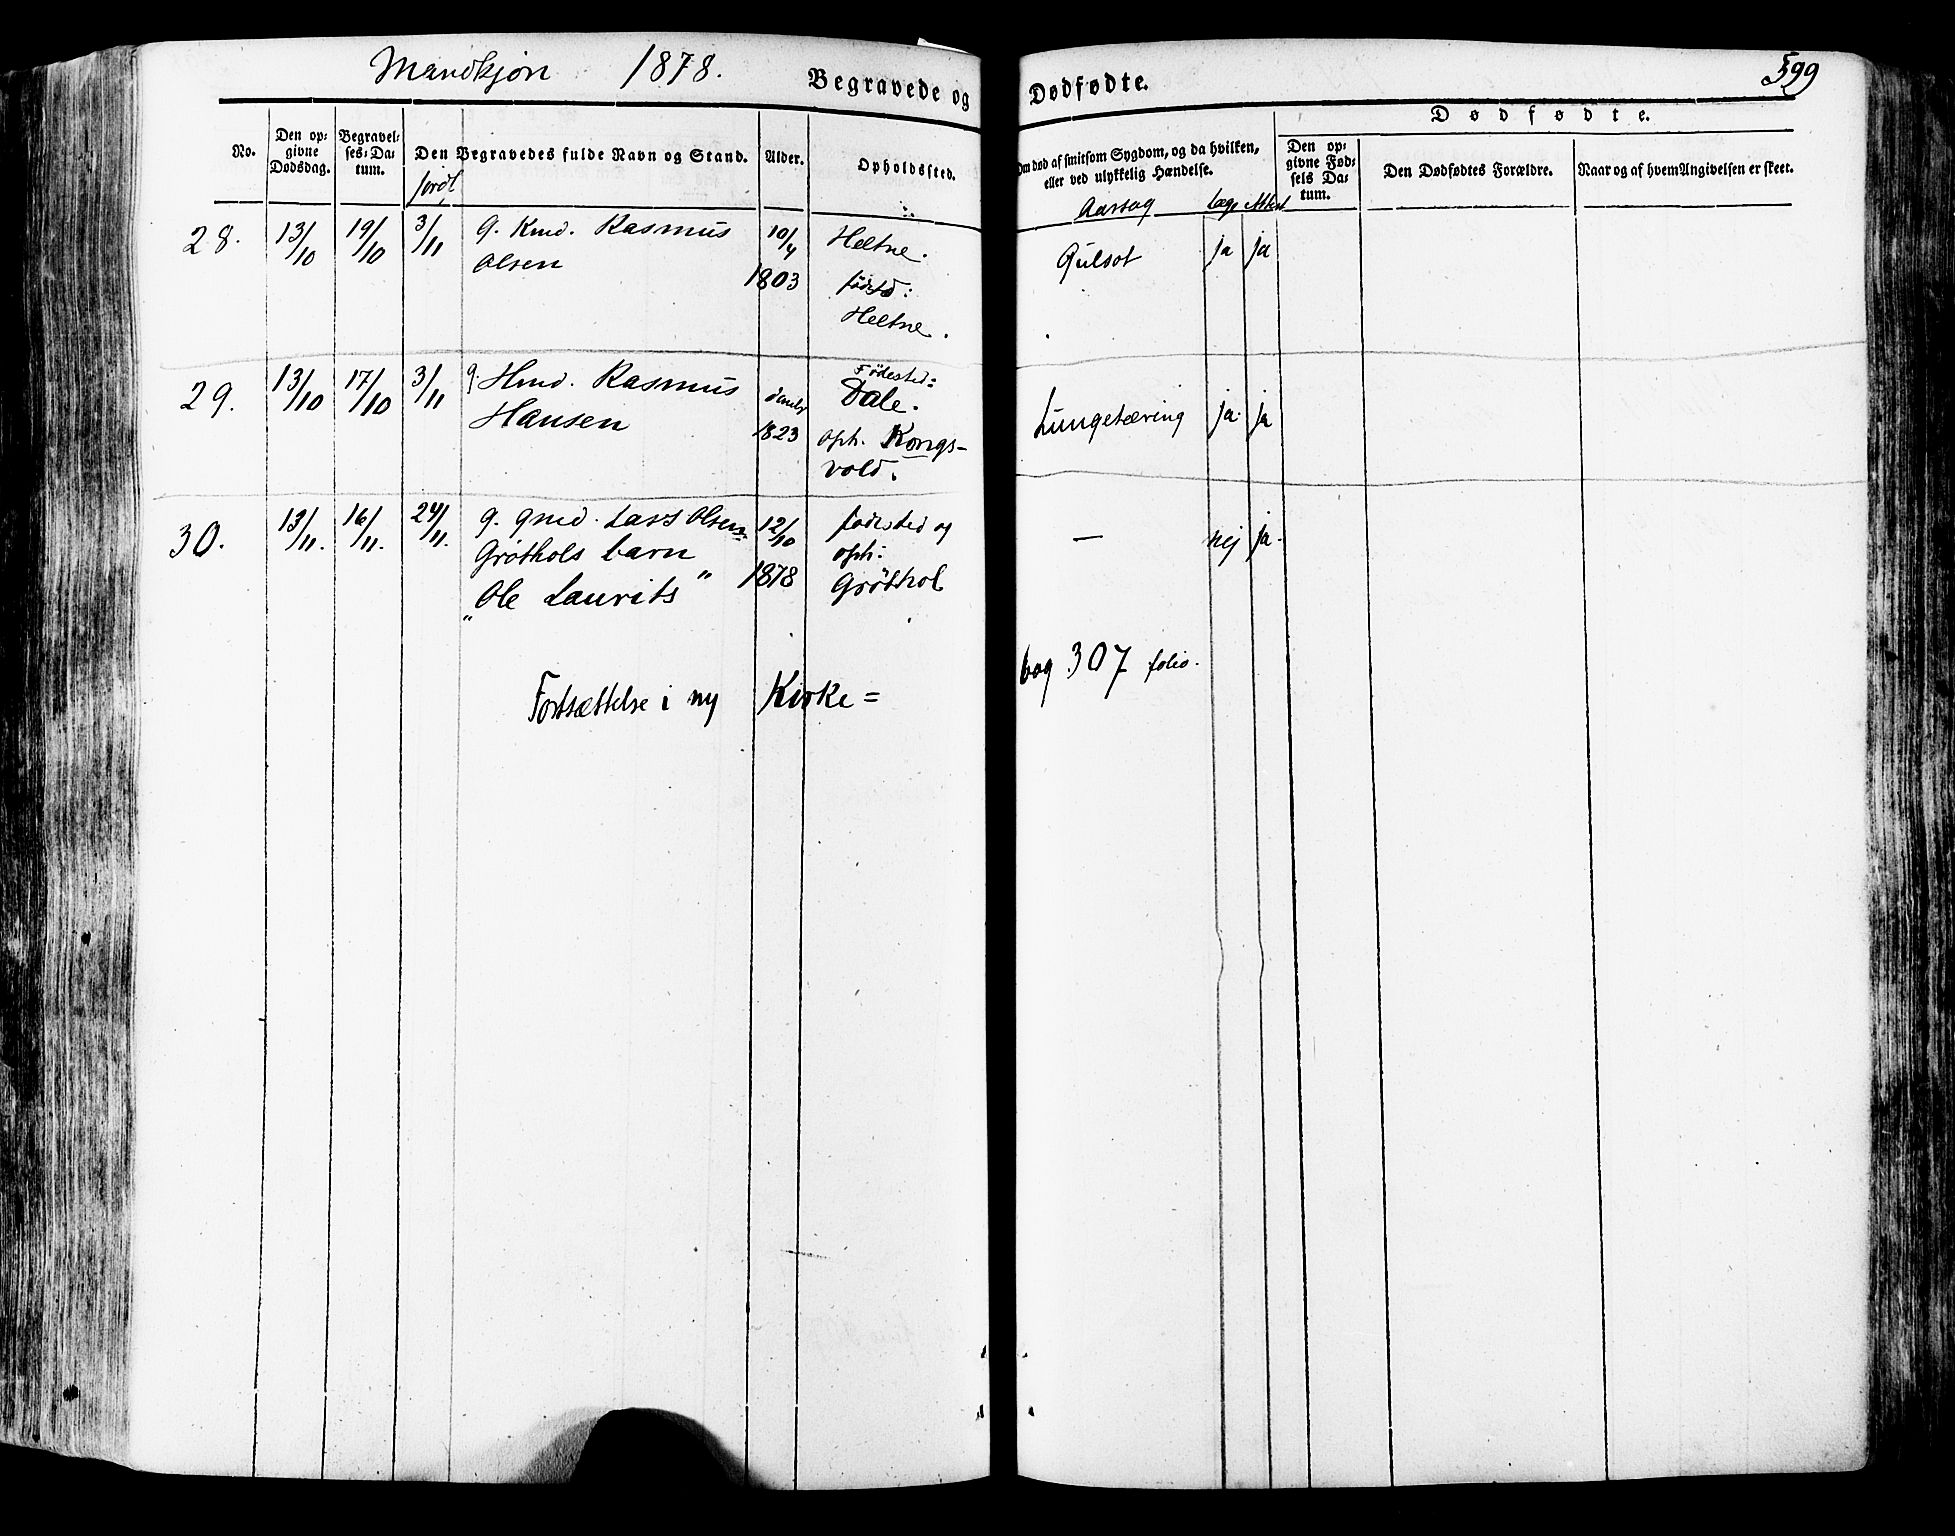 Mandkjøn 1878.
Begravede og Dødfødte.
599
No.
Den opgivne Dødsdag.
Begravelses-Datum.
jordf.
Den Begravedes fulde Navn og Stand.
Alder.
Opholdssted.
Om død af smitsom Sygdom, og da hvilken,
eller ved ulykkelig Hændelse.
Aarsag
Læge
Attest
Dødfødte.
Den opgivne Fødsels Datum.
Den Dødfødtes Forældre.
Naar og af hvem Angivelsen er skeet.
28. 13/10 19/10 3/11 g. Kmd. Rasmus 10/4 Heltne. Gulsot ja ja
Olsen 1803 fødstd:
Heltne.
29. 13/10 17/10 3/11 g. Hmd. Rasmus Fødested:
Hansen 1823 Dale. Lungetæring ja. ja
oph. Kongs-
vold.
30. 13/11. 16/11. 24/11. g. gmd. Lars Olsen 12/10 fødested og — nej ja.
Grøthols barn oph:
"Ole Laurits" 1878 Grøthol
Fortsættelse i ny Kirke=
bog 307 folio.